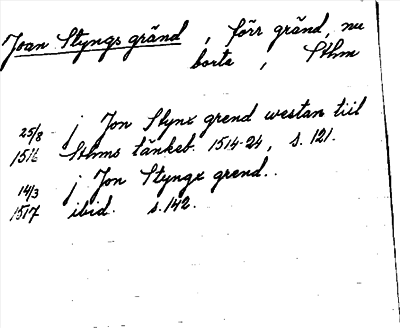 Joan Styngs gränd, förr gränd, nu
borta, Sthm
25/8 j Jon Stynx grend westan till
1516 Sthms tänkeb. 1514-24, s. 121.
14/3 j Jon Stynge grend.
1517 ibid. s. 142.